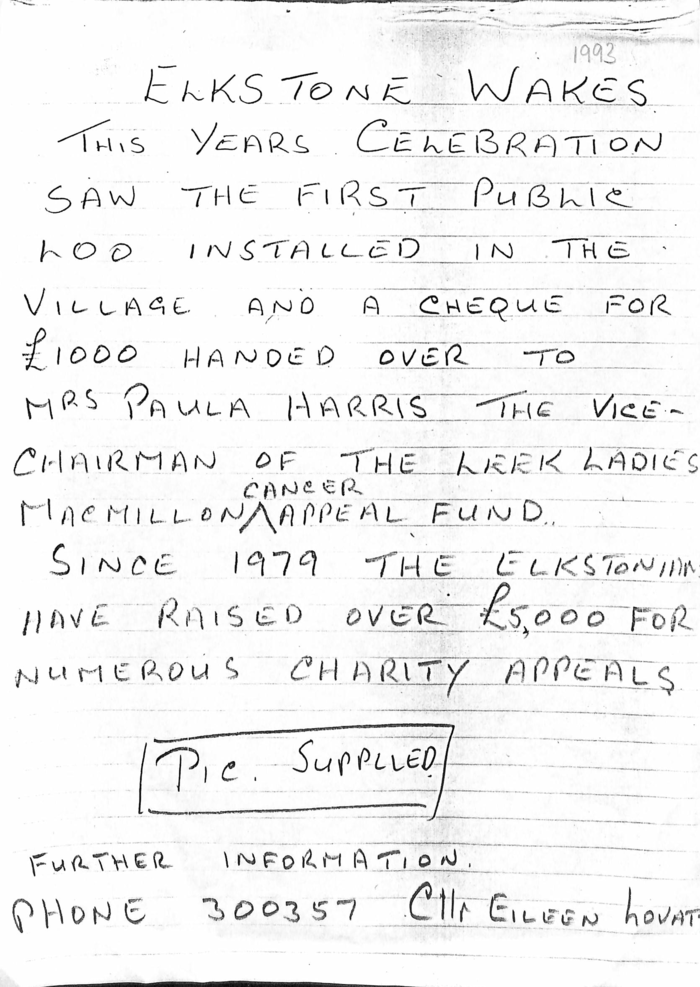 1993
ELKSTONE WAKES
THIS YEARS CELEBRATION
SAW THE FIRST PUBLIC
LOO INSTALLED IN THE
VILLAGE AND A CHEQUE FOR
£1000 HANDED OVER TO
MRS PAULA HARRIS THE VICE-
CHAIRMAN OF THE LEEK LADIES
CANCER
MACMILLON APPEAL FUND.
SINCE 1979 THE ELKSTONIAN
HAVE RAISED OVER £5,000 FOR
NUMEROUS CHARITY APPEALS
Pic. SUPPLIED
FURTHER INFORMATION.
PHONE 300357 Cllr EILEEN LOVAT